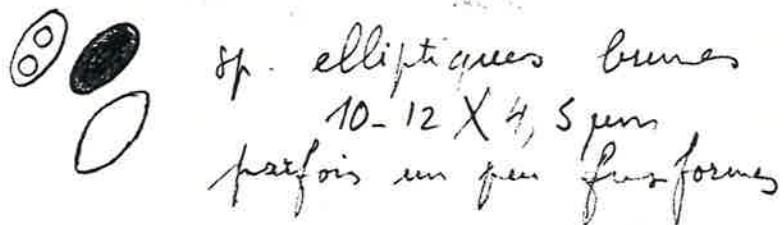 sp. elliptiques brunes
10-12 X 4,5 µm
parfois un peu fusiformes